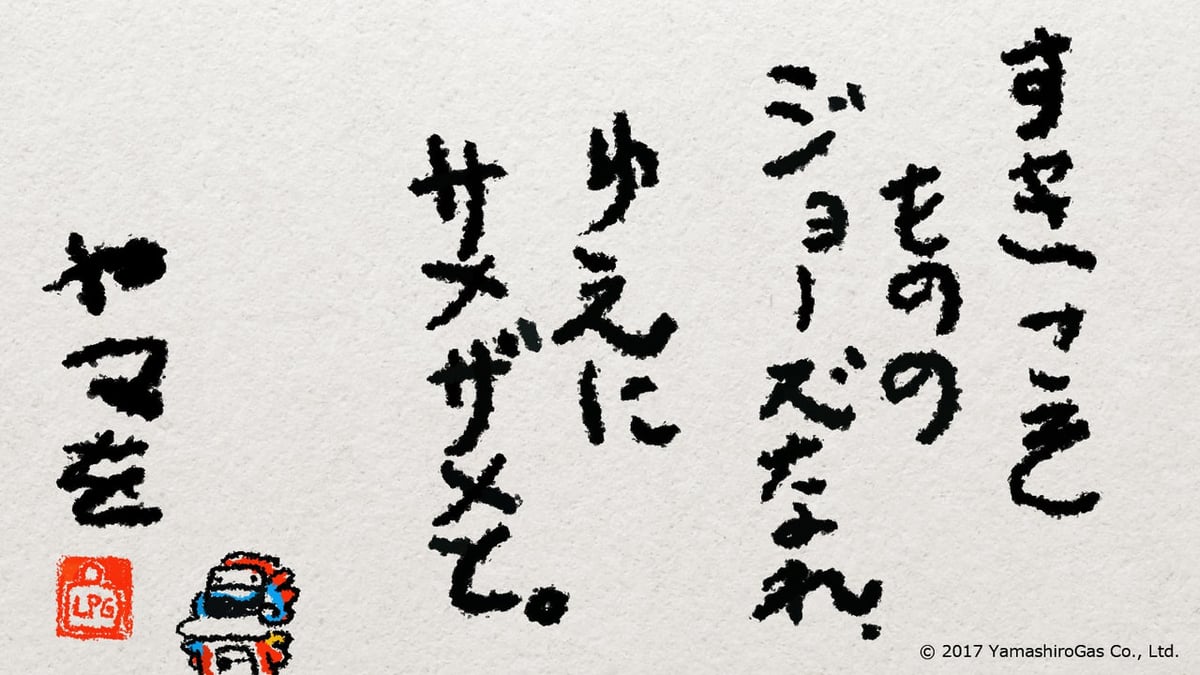 すきこそ
ものの
ジョーズなれ、
ゆえに
サメザメと。
LPG
© 2017 YamashiroGas Co., Ltd.